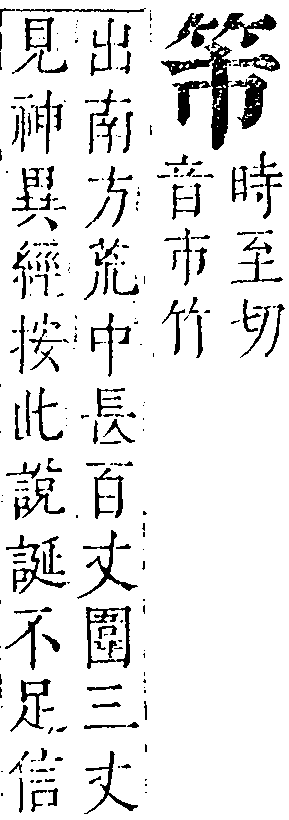 時至切
音市竹
出南方荒中長百丈圍三丈
見神異經按此說誕不足信